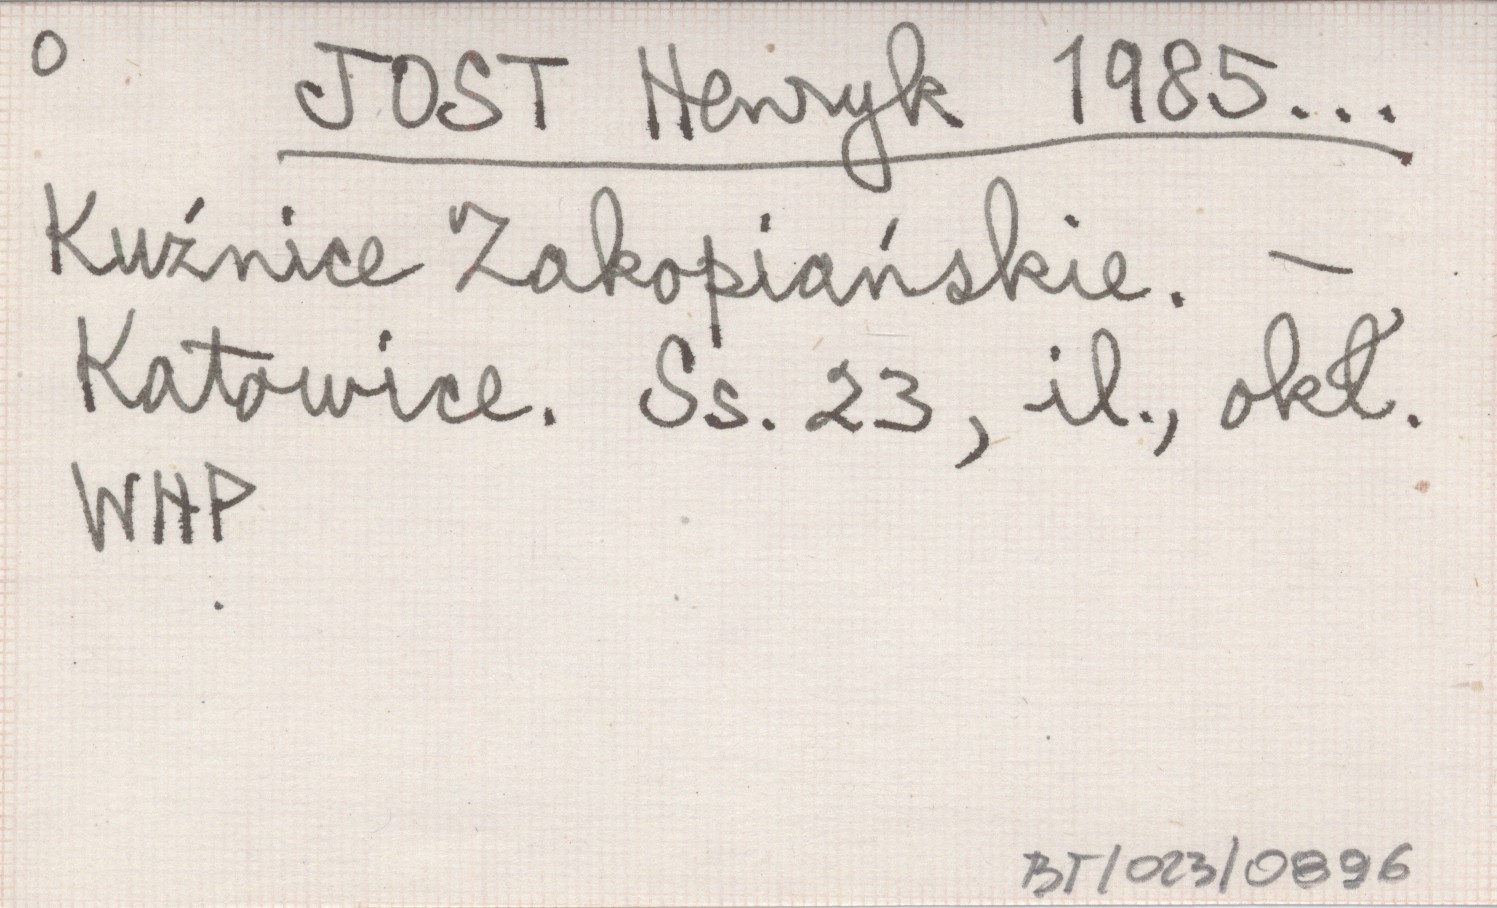 o JOST Henryk 1985...
Kuźnice Zakopiańskie. –
Katowice. Ss. 23, il., okł.
WHP
BT/023/0896